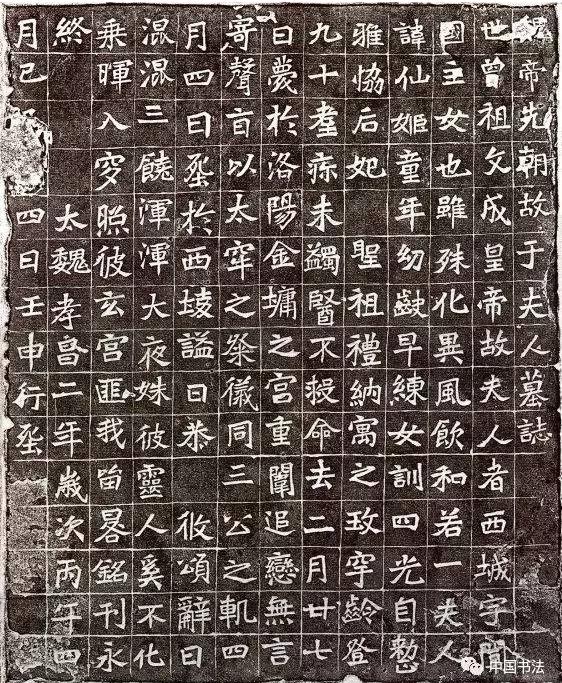 魏帝先朝故于夫人墓誌
世曾祖文成皇帝故夫人者西城宇
國主女也雖殊化異風飲和若一夫人
諱仙姬童年幼齔早練女訓四光自
雅恊后妃 聖祖禮納寓之玫宇齡登
九十耋疹未蠲醫不救命去二月廿七
日薨於洛陽金墉之宮重闈追戀無言
寄聲旨以太牢之祭儀同三公之軌四
月四日葬於西陵謚曰恭 攸頌辭曰
混混三饒渾渾大夜姝彼靈人奚不化
乘暉入穸照彼玄宮匪我留晷銘刊永
終 太魏孝昌二年歲次丙午四
月己 四日壬申行葬
中国书法